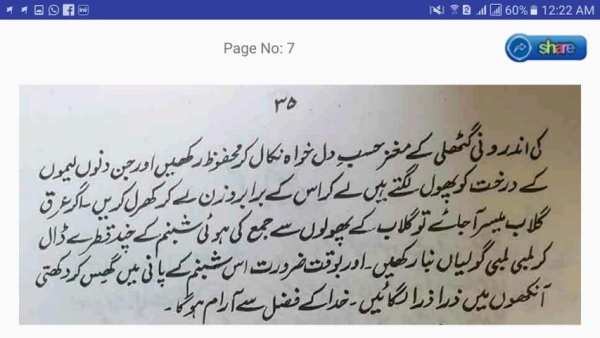 60% 12:22 AM
Page No: 7
share
۳۵
کی اندرونی گٹھلی کے مغز حسب دل خواہ نکال کر محفوظ رکھیں اور جن دنوں لیموں
کے درخت کو پھول لگتے ہیں لے کر اس کے برابر وزن لے کر کھرل کریں۔ اگر عرق
گلاب میسر آجائے تو گلاب کے پھولوں سے جمع کی ہوئی شبنم کے چند قطرے ڈال
کر لمبی لمبی گولیاں بنا رکھیں۔ اور بوقت ضرورت اس شبنم کے پانی میں گھس کر دکھتی
آنکھوں میں ذرا ذرا لگائیں۔ خدا کے فضل سے آرام ہوگا۔